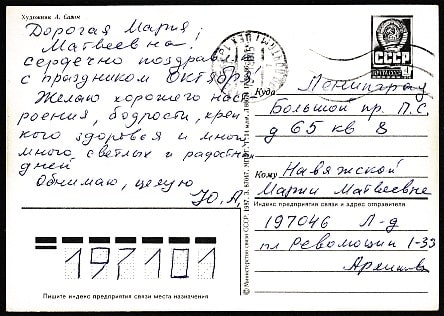 Художник А. Савин
Дорогая Мария
Матвеевна!
Сердечно поздрав
с праздником Октября.
Желаю хорошего наст
роения, бодрости, креп
кого здоровья и много
много светлых и радостн
дней
Обнимаю, целую
Ю. А.
СССР
Куда Ленинград
Большой пр. П.С.
д 65 кв 8
Кому Навяжской
Марии Матвеевне
Индекс предприятия связи и адрес отправителя
197046 Л-д
пл Революции 1-33
197101
Пишите индекс предприятия связи места назначения
© Министерство связи СССР. 1987.